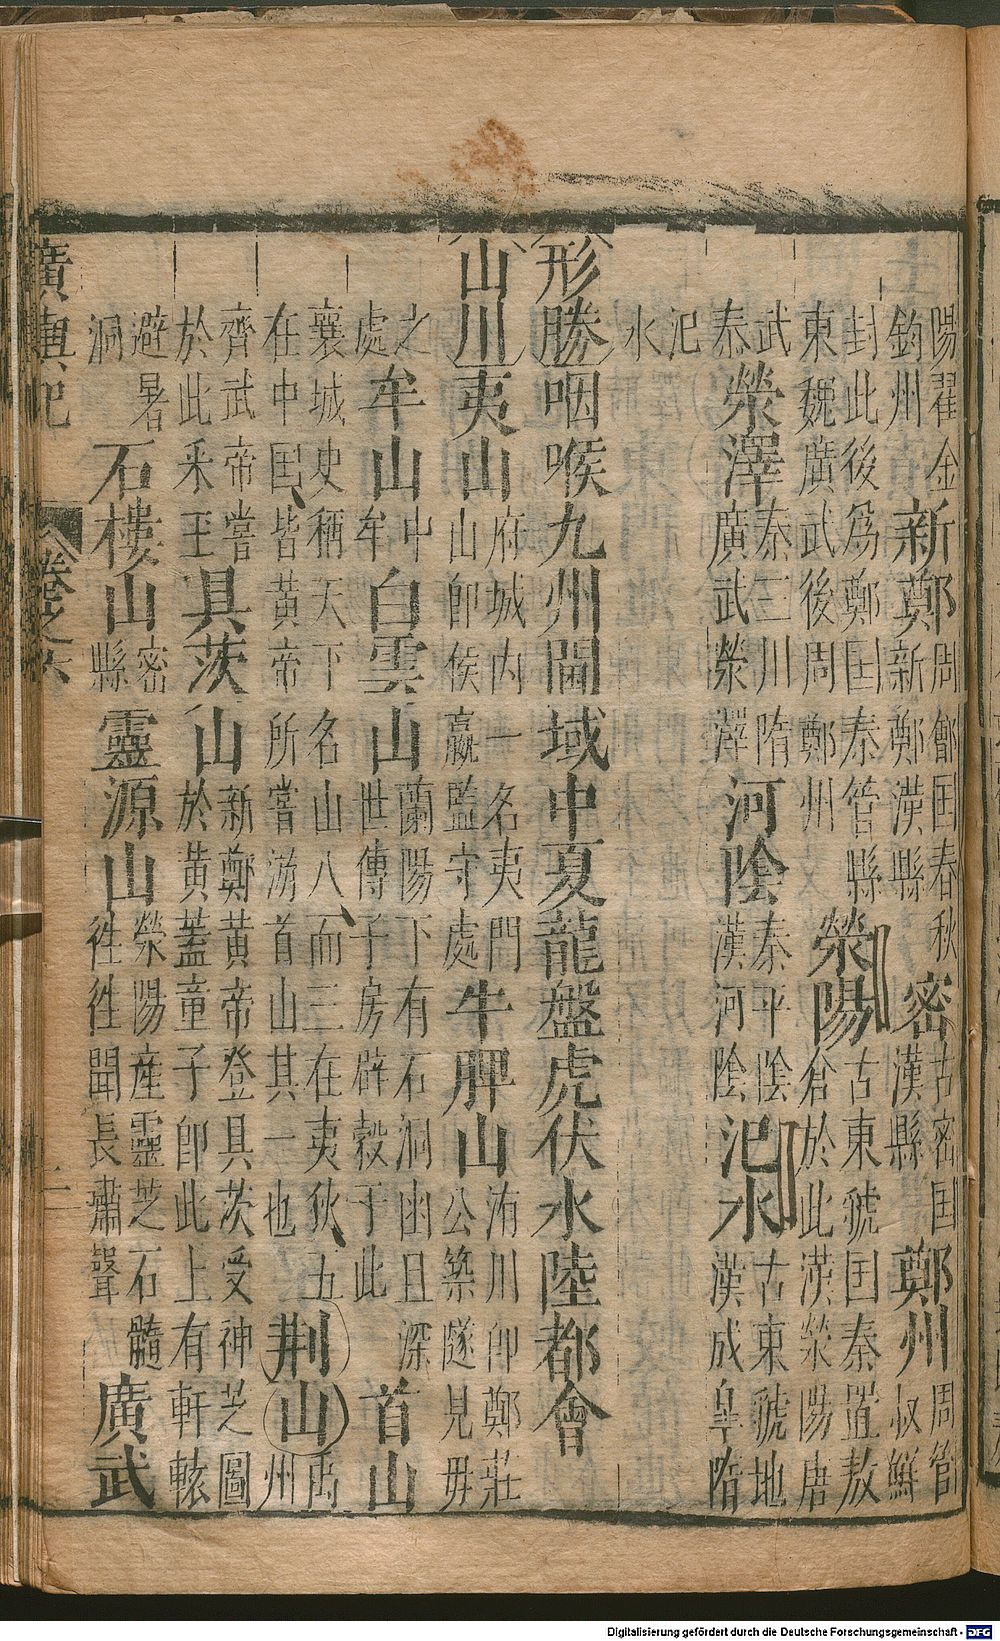 陽翟金鈞州新鄭周鄶国春秋新鄭漢縣密古密国漢縣鄭州周管叔鮮
封此後為鄭国秦管縣東魏廣武後周鄭州滎陽古東虢国秦置敖倉於此漢滎陽唐
武泰滎澤秦三川隋廣武滎澤河陰秦平陰漢河陰汜水古東虢地漢成皐隋
汜水
形勝咽喉九州閫域中夏龍盤虎伏水陸都會
山川夷山府城内一名夷門山即侯嬴監守處牛脾山洧川即鄭莊公築隧見毋
之處牟山中牟白雲山蘭陽下有石洞幽且深世傳子房辟穀于此首山
襄城史稱天下名山八而三在夷狄五在中国皆黄帝所嘗游首山其一也荆山禹州
齊武帝嘗於此采玉具茨山新鄭黄帝登具茨受神芝圖於黄蓋童子即此上有軒轅
避暑洞石樓山密縣靈源山滎陽産靈芝石髓徃徃聞長嘯聲廣武
廣輿記 卷之六 二
Digitalisierung gefördert durch die Deutsche Forschungsgemeinschaft - DFG